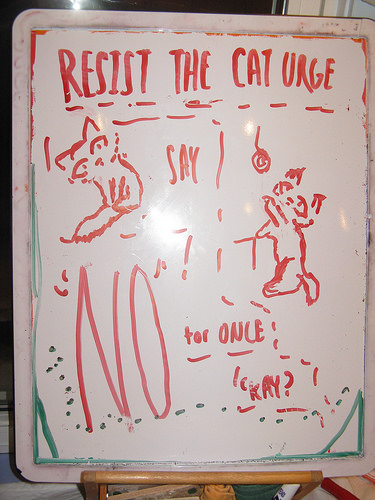 RESIST THE CAT URGE
SAY
"NO"!
for ONCE!
'KAY?